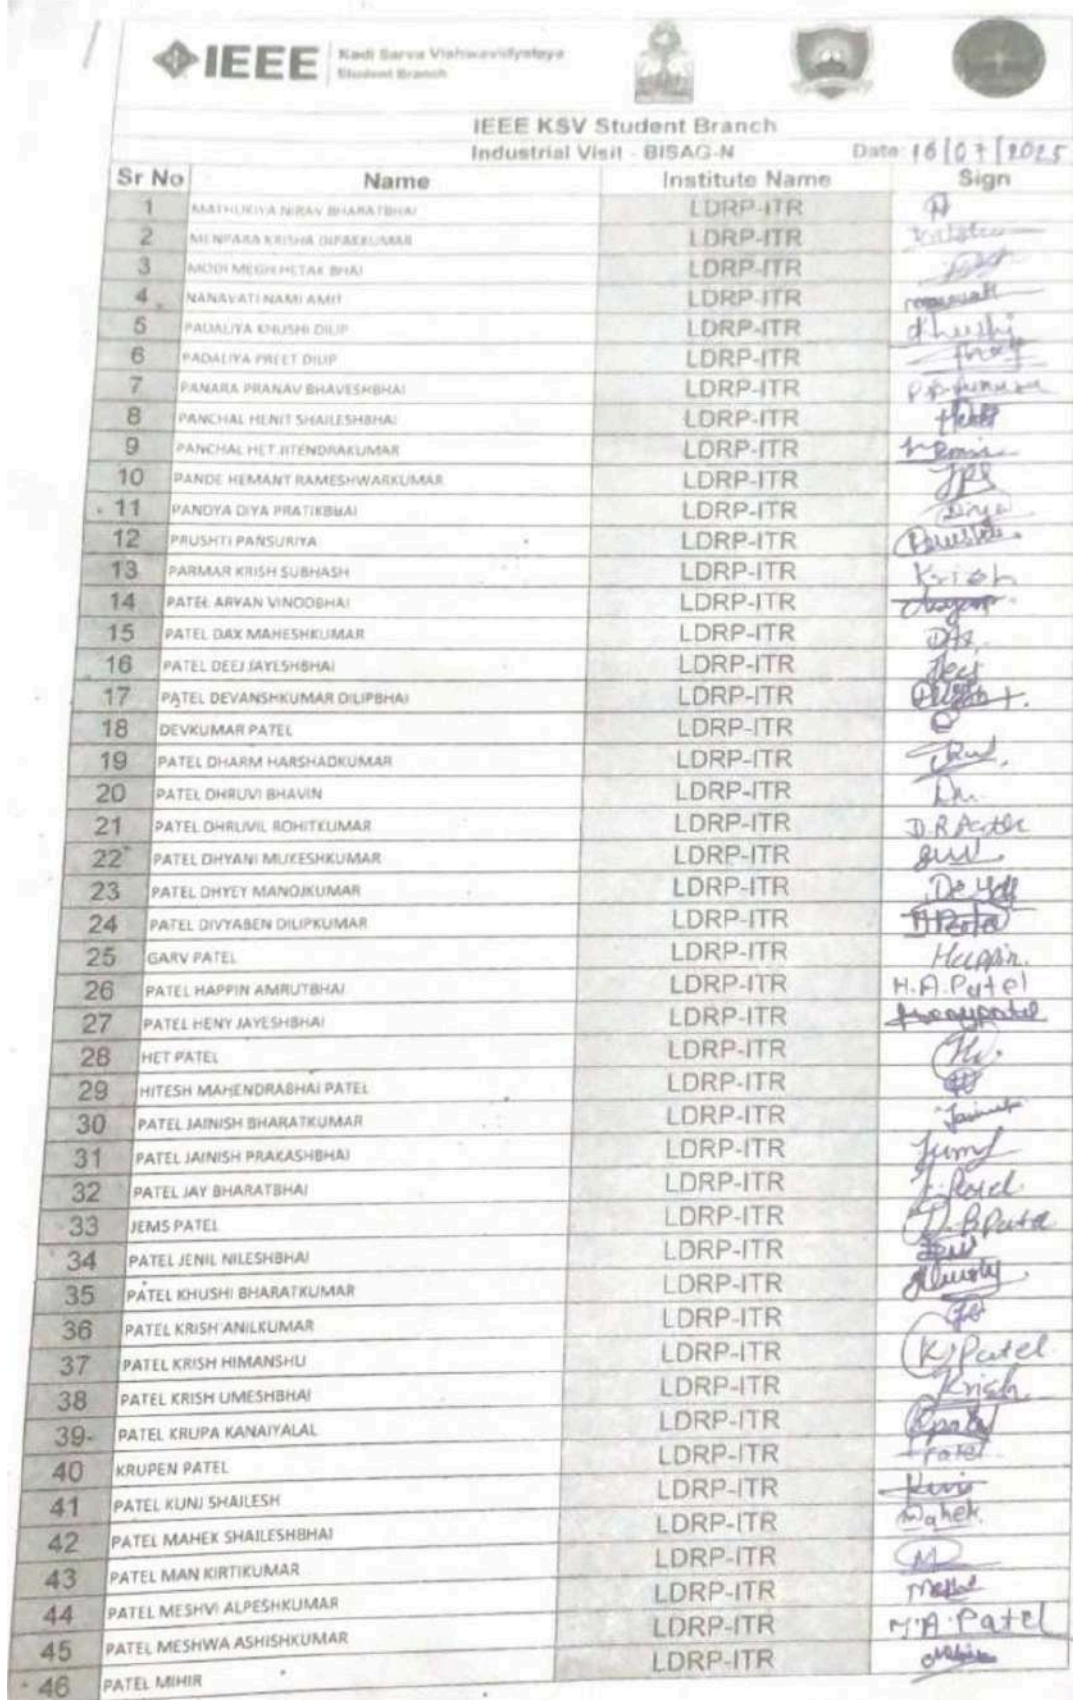 IEEE Kadi Sarva Vishwavidyalaya
Student Branch
IEEE KSV Student Branch
Industrial Visit - BISAG-N Date: 16/07/2025
Sr No Name Institute Name Sign
1 MATHUKIYA NIRAV BHARATBHAI LDRP-ITR
2 MENPARA KRISHA DIPAKKUMAR LDRP-ITR
3 MODI MEGH HETAK BHAI LDRP-ITR
4 NANAVATI NAMI AMIT LDRP-ITR
5 PADALIYA KHUSHI DILIP LDRP-ITR
6 PADALIYA PREET DILIP LDRP-ITR
7 PANARA PRANAV BHAVESHBHAI LDRP-ITR
8 PANCHAL HENIT SHAILESHBHAI LDRP-ITR
9 PANCHAL HET JITENDRAKUMAR LDRP-ITR
10 PANDE HEMANT RAMESHWARKUMAR LDRP-ITR
11 PANDYA DIYA PRATIKBHAI LDRP-ITR Diya
12 PRUSHTI PANSURIYA LDRP-ITR
13 PARMAR KRISH SUBHASH LDRP-ITR Krish
14 PATEL ARYAN VINODBHAI LDRP-ITR
15 PATEL DAX MAHESHKUMAR LDRP-ITR
16 PATEL DEEJ JAYESHBHAI LDRP-ITR
17 PATEL DEVANSHKUMAR DILIPBHAI LDRP-ITR
18 DEVKUMAR PATEL LDRP-ITR
19 PATEL DHARM HARSHADKUMAR LDRP-ITR
20 PATEL DHRUVI BHAVIN LDRP-ITR
21 PATEL DHRUVIL ROHITKUMAR LDRP-ITR
22 PATEL DHYANI MUKESHKUMAR LDRP-ITR
23 PATEL DHYEY MANOJKUMAR LDRP-ITR
24 PATEL DIVYABEN DILIPKUMAR LDRP-ITR
25 GARV PATEL LDRP-ITR Happin.
26 PATEL HAPPIN AMRUTBHAI LDRP-ITR H.A.Patel
27 PATEL HENY JAYESHBHAI LDRP-ITR
28 HET PATEL LDRP-ITR
29 HITESH MAHENDRABHAI PATEL LDRP-ITR
30 PATEL JAINISH BHARATKUMAR LDRP-ITR
31 PATEL JAINISH PRAKASHBHAI LDRP-ITR
32 PATEL JAY BHARATBHAI LDRP-ITR
33 JEMS PATEL LDRP-ITR
34 PATEL JENIL NILESHBHAI LDRP-ITR
35 PATEL KHUSHI BHARATKUMAR LDRP-ITR
36 PATEL KRISH ANILKUMAR LDRP-ITR
37 PATEL KRISH HIMANSHU LDRP-ITR K.Patel
38 PATEL KRISH UMESHBHAI LDRP-ITR Krish
39 PATEL KRUPA KANAIYALAL LDRP-ITR
40 KRUPEN PATEL LDRP-ITR
41 PATEL KUNJ SHAILESH LDRP-ITR
42 PATEL MAHEK SHAILESHBHAI LDRP-ITR Mahek.
43 PATEL MAN KIRTIKUMAR LDRP-ITR
44 PATEL MESHVI ALPESHKUMAR LDRP-ITR
45 PATEL MESHWA ASHISHKUMAR LDRP-ITR M.A.Patel
46 PATEL MIHIR LDRP-ITR